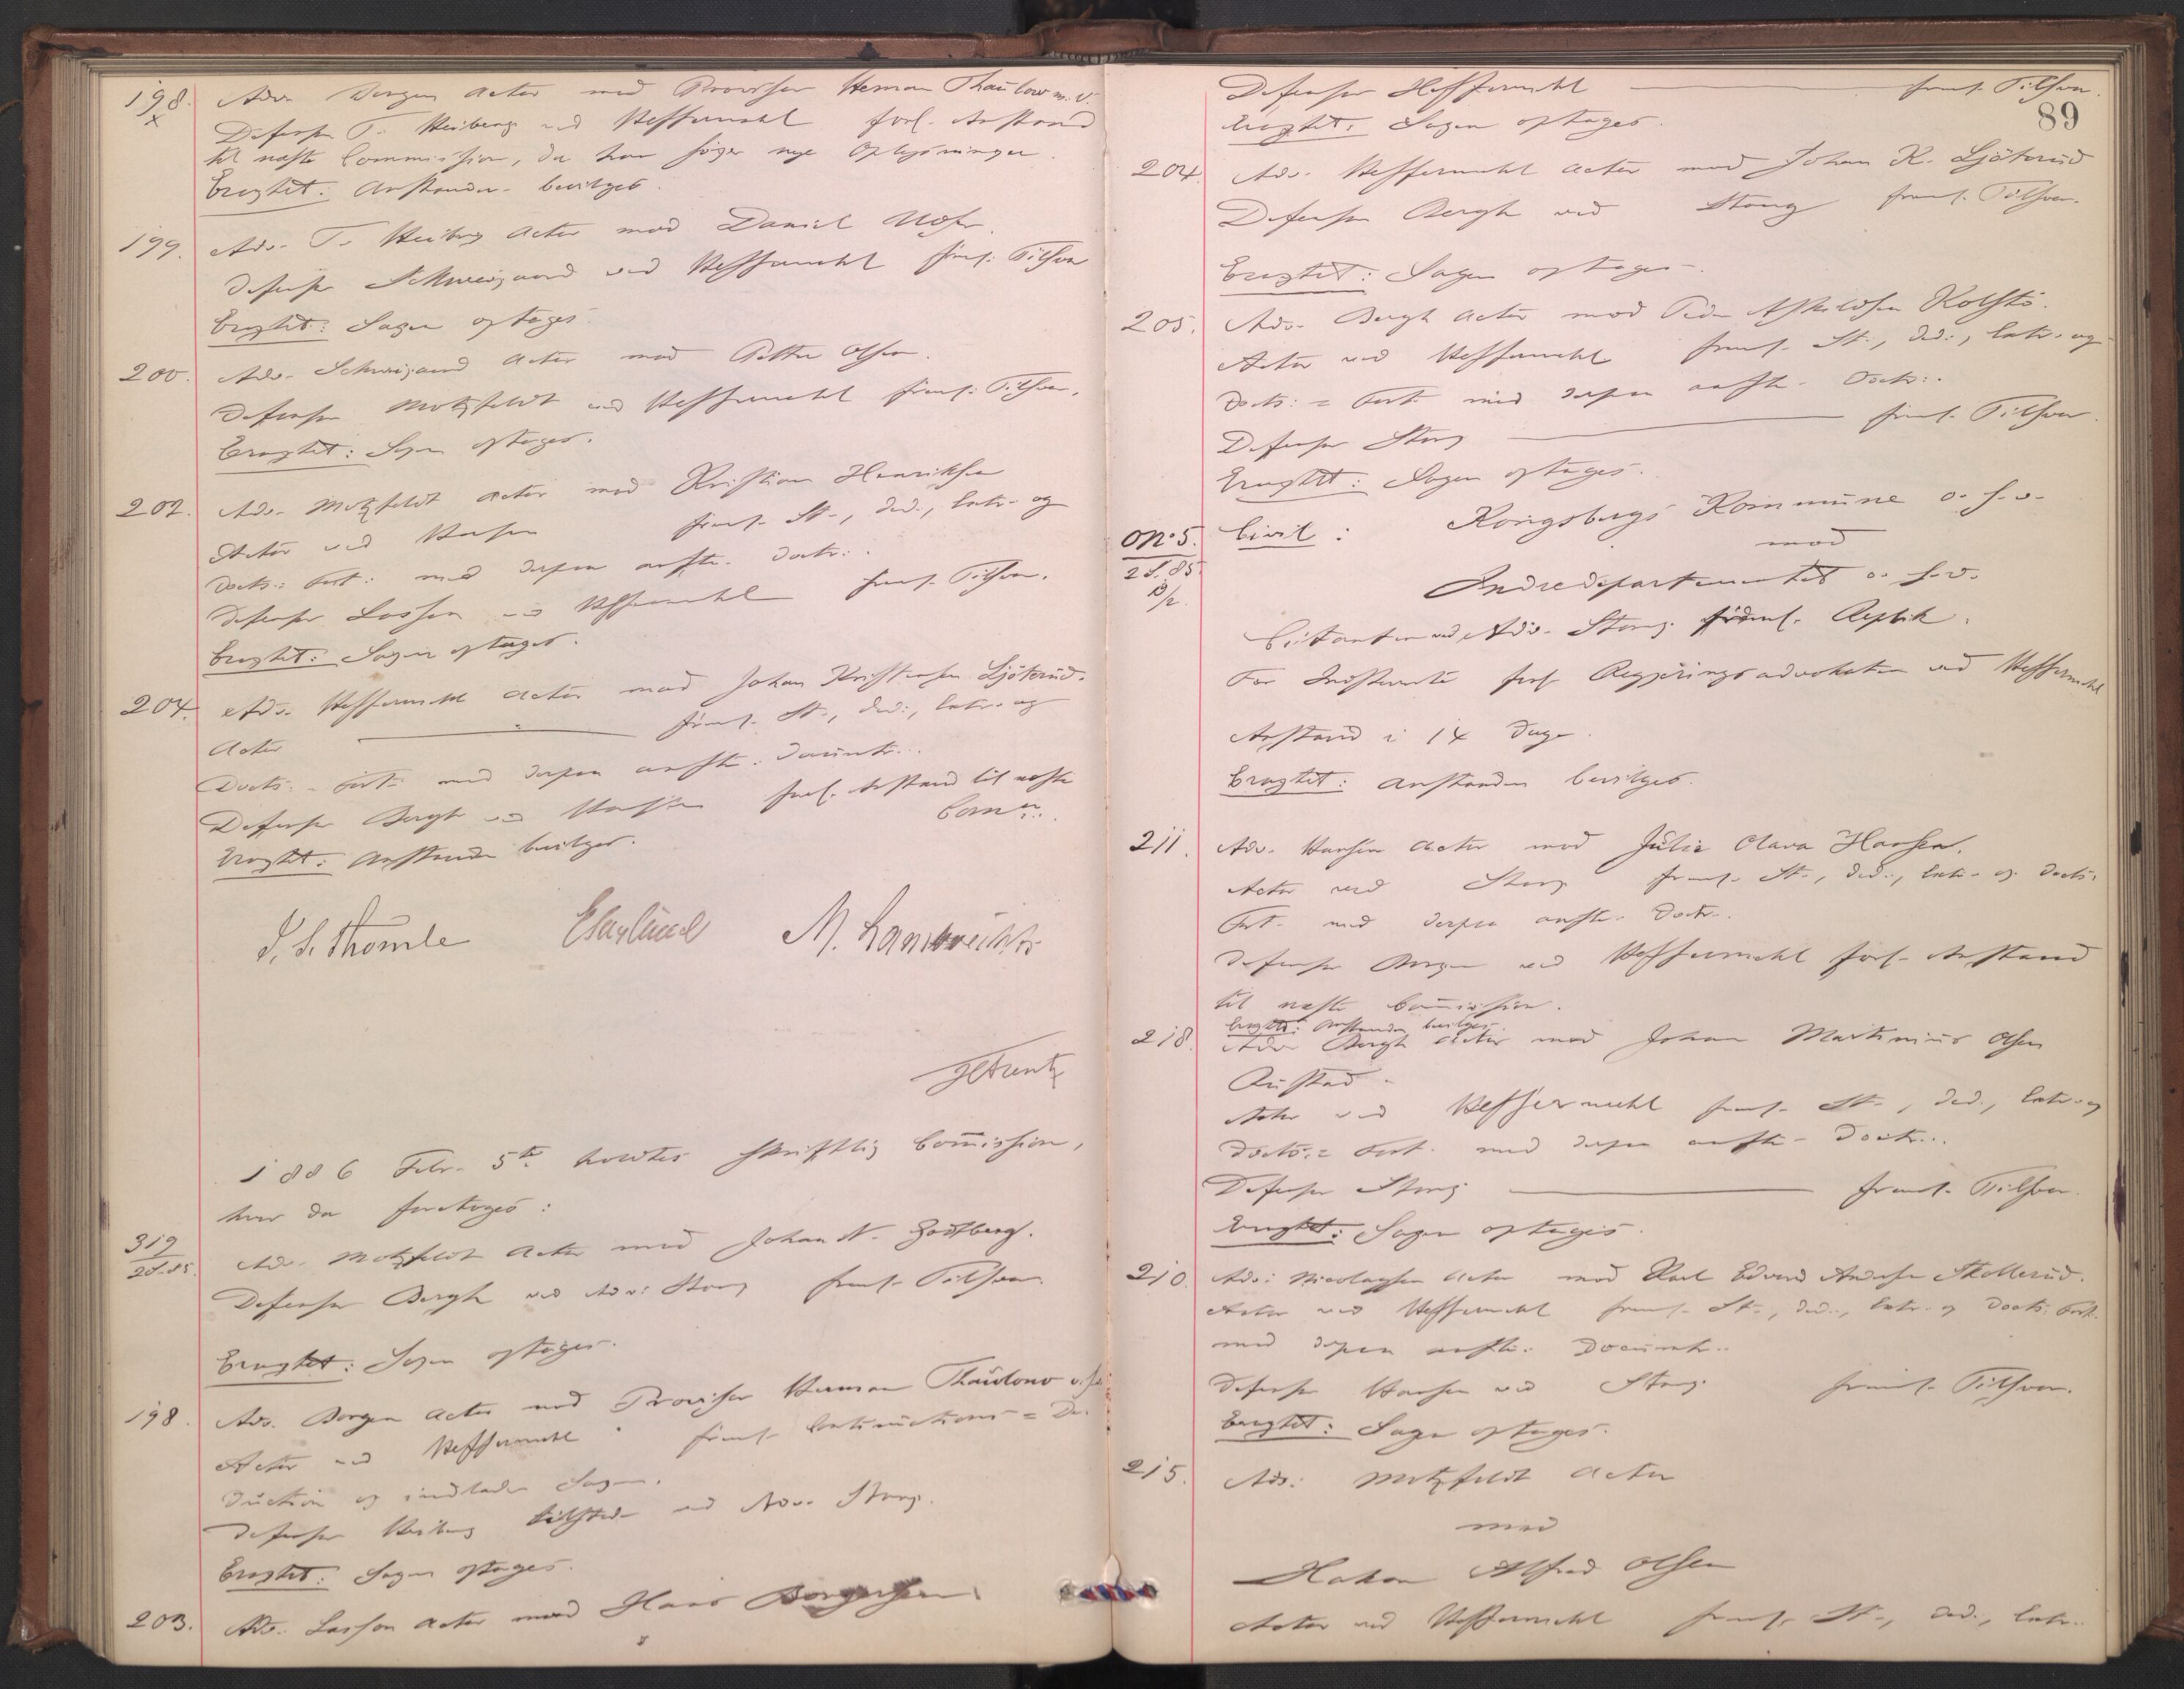 198. Adv. Bergen Actor mod Provisor Herman Thaulow m. v.
x
Defensor T. Heiberg ved Heffermehl forl. Anstand
til næste Commission, da han søger nye Oplysninger.
Eragtet: Anstanden bevilges.
199. Adv. T. Heiberg Actor mod Daniel
Defensor Schweigaard ved Heffermehl freml. Tilsvar
Eragtet: Sagen optages.
200. Adv. Schweigaard Actor mod Petter Olsen.
Defensor Motzfeldt ved Heffermehl freml. Tilsvar.
Eragtet: Sagen optages.
202. Adv. Motzfeldt Actor mod Kristian Henriksen
Actor ved Hansen freml. St., Ded., Extr. og
Docts: Fort: med derpaa anfte. Doctr:.
Defensor Lasson ved Heffermehl freml. Tilsvar.
Eragtet: Sagen optages.
204. Adv. Heffermehl Actor mod Johan Kristensen Ljöterud.
Actor — " — freml. St., Ded:, Extr. og
Docts: = Fort: med derpaa anfte: Documtr:.
Defensor Bergh ved Hansen forl. Anstand til næste
Comn:.
Eragtet: Anstanden bevilges.
M. Lambrechts
1886 Febr. 5te holdtes skriftlig Commission,
hvor da foretoges:
319
2S.85. Adv. Motzfeldt Actor mod Johan N.
Defensor Bergh ved Adv: Stang freml. Tilsvar.
Eragtet: Sagen optages.
198. Adv. Bergen Actor mod Provisor Herman Thaulow
Actor ved Heffermehl freml. Contraductions = De-
duction og indlader Sagen.
Defensor Heiberg tilstede ved Adv. Stang.
Eragtet: Sagen optages.
203. Adv. Lasson Actor mod Hans Borgersen
89
Defensor Heffermehl — freml. Tilsvar.
Eragtet: Sagen optages.
204. Adv. Heffermehl Actor mod Johan K. Ljöterud
Defensor Bergh ved Stang freml. Tilsvar.
Eragtet: Sagen optages.
205. Adv. Bergh Actor mod Peder Askildsen Kolstö.
Actor ved Heffermehl freml. St., Ded:, Extr. og
Docts: = Fort. med derpaa anfte. Doctr:.
Defensor Stang — freml. Tilsvar.
Eragtet: Sagen optages.
No. 5.
2S.85. Civil: Kongsbergs Kommune o. s. v.
mod
Indredepartementet o. s. v.
Citanten ved Adv. Stang freml. Replik.
For Indstevnte forl. Regjeringsadvokaten ved Heffermehl
Anstand i 14 Dage.
Eragtet: Anstanden bevilges.
211. Adv. Hansen Actor mod Julie Olava Hansen.
Actor ved Stang freml. St., Ded:, Extr. og Docts:
Fort. med derpaa anfte. Doctr:.
Defensor Bergen ved Heffermehl forl. Anstand
til næste Commission.
Eragtet: Anstanden bevilges.
218. Adv. Bergh Actor mod Johan Martinius Olsen
Austad.
Actor ved Heffermehl freml. St., Ded., Extr. og
Docts: = Fort. med derpaa anfte. Doctr:.
Defensor Stang — freml. Tilsvar.
Eragtet: Sagen optages.
210. Adv: Nicolaysen Actor mod Karl Edvard Andersen Skollerud.
Actor ved Heffermehl freml. St., Ded:, Extr. og Docts: Fort.
med derpaa anfte: Documtr:.
Defensor Hansen ved Stang freml. Tilsvar.
Eragtet: Sagen optages.
215. Adv: Motzfeldt Actor
mod
Hakon Alfred Olsen
Actor ved Heffermehl freml. St., Ded., Extr.